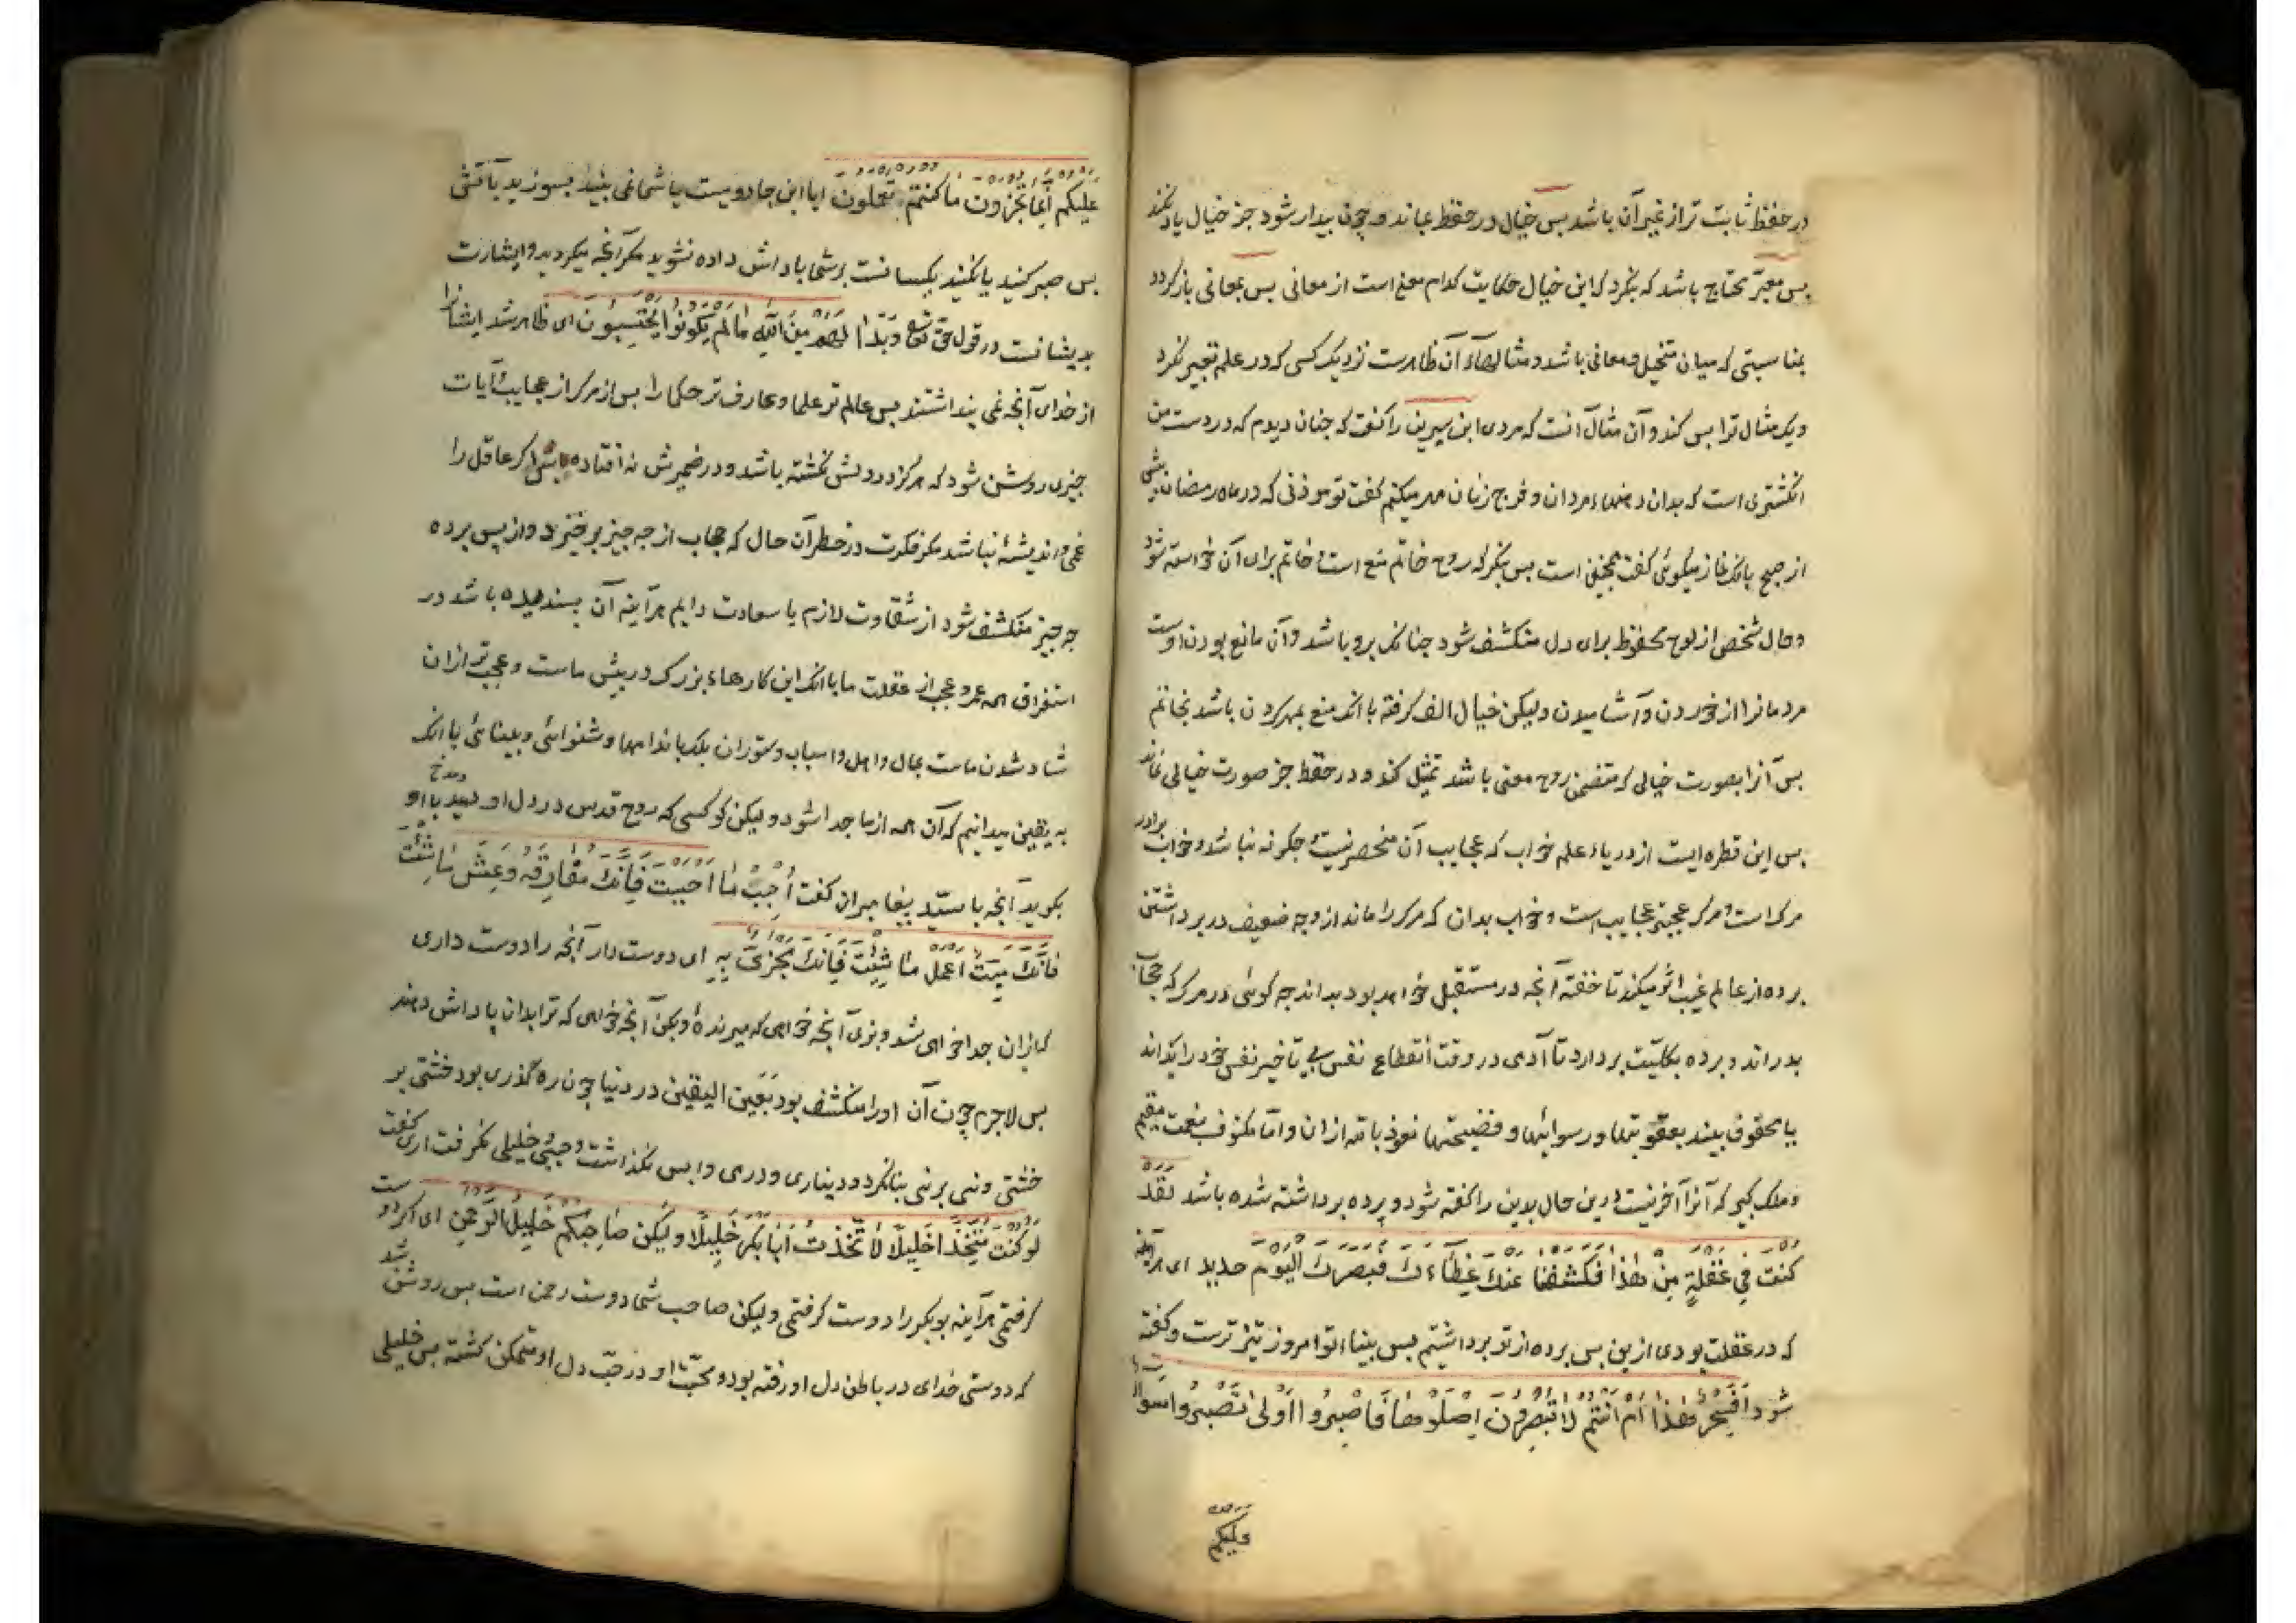 در حفظ ثابت تر از غیر آن باشد بس خیال در حفظ بماند و چون بیدار شود جز خیال یاد نکند
بس معبّر محتاج باشد که بنکرد که این خیال حکایت کدام معنی است از معانی بس بمعانی باز کردد
بمناسبتی که میان متخیل و معانی باشد و مثالهاء آن ظاهرست نزدیک کسی که در علم تعبیر نکرد
و یک مثال ترا بس کند و آن مثال آنست که مردی ابن سیرین را کفت که جنان دیدم که در دست من
انکشتری است که بدان دهنهاء مردان و فرج زنان مهر میکنم کفت تو موذنی که در ماه رمضان بیش
از صبح بانک نماز میکوئی کفت همچنین است بس بنکر که روح خاتم منع است و خاتم برای آن خواسته شود
و حال شخص از لوح محفوظ برای دل منکشف شود جنانک برو باشد و آن مانع بودن اوست
مردمانرا از خوردن و آشامیدن ولیکن خیال الف کرفته با انک منع بمهر کردن باشد بخاتم
بس آنرا بصورت خیالی که متضمن روح معنی باشد تمثیل کند و در حفظ جز صورت خیالی نماند
بس این قطره ایست از دریاء علم خواب که عجایب آن منحصر نیست و جکونه نباشد و خواب برادر
مرک است و مرک عجبتر عجایب است و خواب بدان که مرک را ماند از وجه ضعیف در برداشتن
برده از عالم غیب اثر میکند تا خفته آنجه در مستقبل خواهد بود بداند جه کوئی در مرک که حجاب
بدراند و برده بکلیّت بردارد تا آدمی در وقت انقطاع نفس بی تاخیر نفس خود را بداند
یا محفوف بیند بعقوبتها و رسوائیها و فضیحتها نعوذ بالله ازان و امّا مکنوف بنعمت مقیم
و ملک کبیر که آنرا آخر نیست و درین حال بدین را کفته شود و پرده برداشته شده باشد لَقَدْ
کُنْتَ فِی غَفْلَةٍ مِنْ هٰذَا فَکَشَفْنَا عَنْكَ غِطَاءَكَ فَبَصَرُكَ الْیَوْمَ حَدِید ای هرآینه
که در غفلت بودی ازین بس برده از تو برداشتیم بس بیناء تو امروز تیزترست و کفته
شود اَفَسِحْرٌ هٰذَا اَمْ اَنْتُمْ لَا تُبْصِرُونَ اِصْلَوْهَا فَاصْبِرُوا اَوْ لَا تَصْبِرُوا سَوَاءٌ
علیکم
عَلَیْکُمْ اِنَّمَا تُجْزَوْنَ مَا کُنْتُمْ تَعْمَلُونَ ایا این جادویست یا شما نمی بینید بسوزید بآتش
بس صبر کنید یا نکنید یکسانست بر شما باداش داده نشوید مکر آنجه میکردید و اشارت
بدیشانست در قول حق تعالی وَبَدَا لَهُمْ مِنَ اللّٰهِ مَا لَمْ یَکُونُوا یَحْتَسِبُونَ ای ظاهر شد ایشانرا
از خدای آنجه نمی بنداشتند بس عالم تر علما و عارف تر حکما را بس از مرک از عجایب و آیات
جیزی روشن شود که هرکز در دلش نکشته باشد و در ضمیرش نه افتاده باشد اکر عاقل را
غمی و اندیشهٔ نباشد مکر فکرت در خطر آن حال که حجاب از جه جیز برخیزد و از پس برده
جه جیز منکشف شود از شقاوت لازم یا سعادت دایم هرآینه آن بسندیده باشد در
استغراق همه عمر و عجب از غفلت ما با انک این کارهاء بزرک در بیش ماست و عجب تر ازان
شاد شدن ماست بمال و اهل و اسباب و ستوران بلک باندامها و شنوائی و بینائی با انک
به یقین میدانیم که آن همه از ما جدا شود ولیکن کو کسی که روح قدس در دل او دمد و با او
بکوید آنجه با سیّد بیغامبران کفت اَحْبِبْ مَا اَحْبَبْتَ فَاِنَّكَ مُفَارِقُهُ وَعِشْ مَا شِئْتَ
فَاِنَّكَ مَیِّتٌ اِعْمَلْ مَا شِئْتَ فَاِنَّكَ تُجْزٰی بِهِ ای دوست دار آنجه را دوست داری
که ازان جدا خواهی شد و بزی آنجه خواهی که میرندهٔ و بکن آنجه خواهی که ترا بدان پاداش دهند
بس لاجرم چون آن او را منکشف بود بعین الیقین در دنیا چون ره کذری بود خشتی بر
خشتی و نیی بر نیی بنا نکرد و دیناری و درمی وابس نکذاشت و حبیبی و خلیلی نکرفت اری کفت
لَوْ کُنْتُ مُتَّخِذًا خَلِیلًا لَاتَّخَذْتُ اَبَا بَکْرٍ خَلِیلًا وَلٰکِنْ صَاحِبُکُمْ خَلِیلُ الرَّحْمٰنِ ای اکر دوست
کرفتمی هرآینه بوبکر را دوست کرفتمی ولیکن صاحب شما دوست رحمن است بس روشن شد
که دوستی خدای در باطن دل او رفته بود و محبّت او در حبّ دل او متمکن کشته بس خلیلی